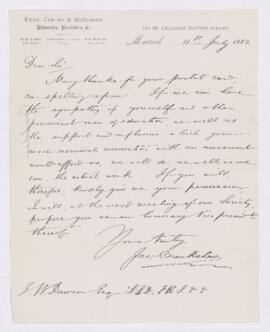 KERR, CARTER & McGIBBON,
Advocates, Barristers, &c.
Montreal, 11th July 1882.
Dear Sir
Many thanks for your postal card
re spelling reform. If we can have
the sympathy of yourself and other
prominent men of education, as well as
the support and influence which your
mere nominal connection with our movement
would afford us, we will do, as well as we
can, the actual work. If you will,
therefore, kindly give me your permission
I will, at the next meeting of our Society,
propose you as an honorary Vice president
thereof.
Yours truly
J W Dawson Esq LL.D. F.R.S. &c